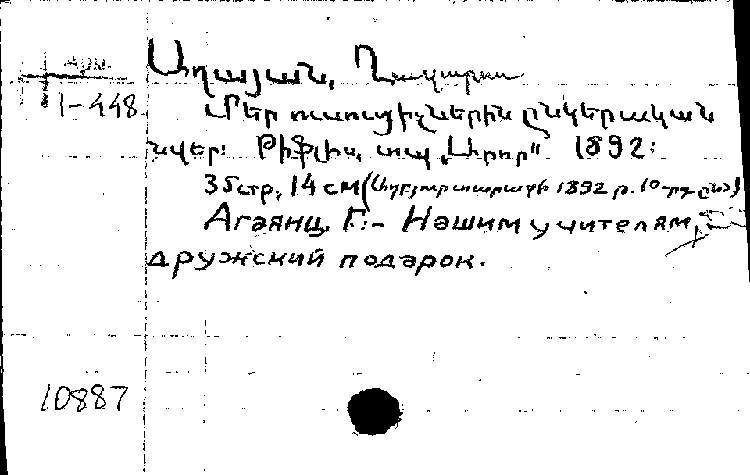 Арм.
1-448
Աղայան, Ղազարոս
Մեր ուսուցիչներին ընկերական
նվեր: Թիֆլիս, տպ. „Արոր“ 1892:
35 стр, 14 см ( 1892 թ. 10-րդ
Агаянц, Г.:- Нашим учителям,
дружский подарок.
10887